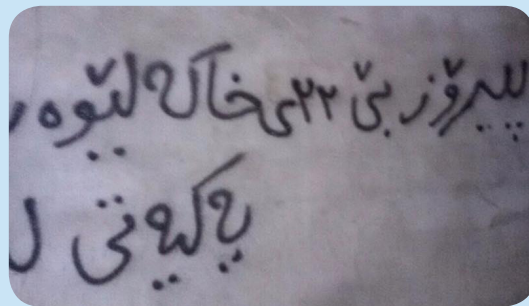 پیرۆز بێ ٢٢ی خاکه لێوه
یه کیه تی ل